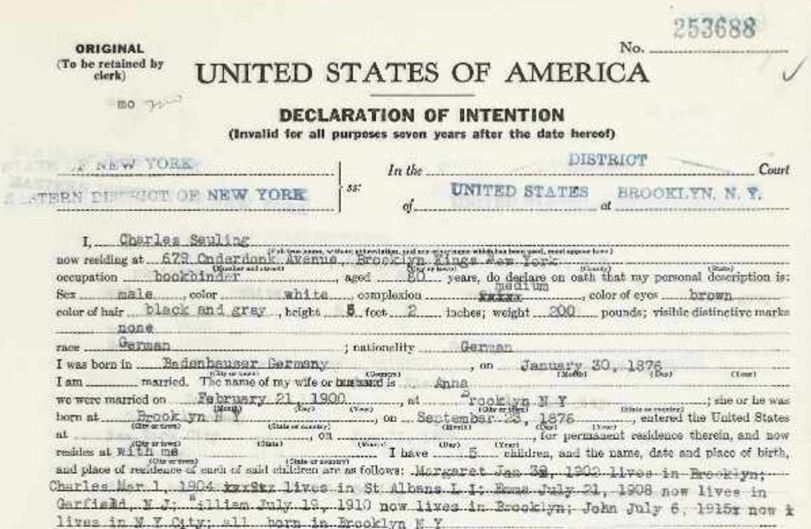 253688
ORIGINAL
(To be retained by
clerk)
No.
UNITED STATES OF AMERICA
mo
DECLARATION OF INTENTION
(Invalid for all purposes seven years after the date hereof)
OF NEW YORK
In the DISTRICT Court
EASTERN DISTRICT OF NEW YORK
ss:
of UNITED STATES at BROOKLYN, N. Y.
I, Charles Seuling
(Full true name, without abbreviation, and any other name which has been used, must appear here)
now residing at 679 Onderdonk Avenue, Brooklyn Kings New York
(Number and street) (City or town) (County) (State)
occupation bookbinder, aged 60 years, do declare on oath that my personal description is:
Sex male, color white, complexion medium, color of eyes brown
color of hair black and gray, height 5 feet 2 inches; weight 200 pounds; visible distinctive marks
none
race German; nationality German
I was born in Badenhauser Germany, on January 30, 1876
(City or town) (Country) (Month) (Day) (Year)
I am married. The name of my wife or husband is Anna
we were married on February 21, 1900, at rooklyn N Y; she or he was
(Month) (Day) (Year) (City or town) (State or country)
born at Brooklyn N Y, on September 1876, entered the United States
(City or town) (State or country) (Month) (Day) (Year)
at, on, for permanent residence therein, and now
(City or town) (State) (Month) (Day) (Year)
resides at with me I have 5 children, and the name, date and place of birth,
(City or town) (State or country)
and place of residence of each of said children are as follows: Margaret Jan 1902 lives in Brooklyn;
Charles Mar 1, 1904 lives in St Albans L I; Emma July 21, 1908 now lives in
Garfield, N J; William July 19, 1910 now lives in Brooklyn; John July 6, 1915 now
lives in N Y City; all born in Brooklyn N Y